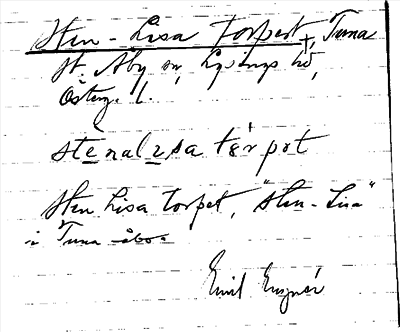 Sten-Lisa Torpet†, Tuna
St. Åby sn, Lysings hd,
Österg. l.
stenalisa tǝrpǝt
Sten Lisa torpet, "Sten-Lisa"
i Tuna åbo.
Emil